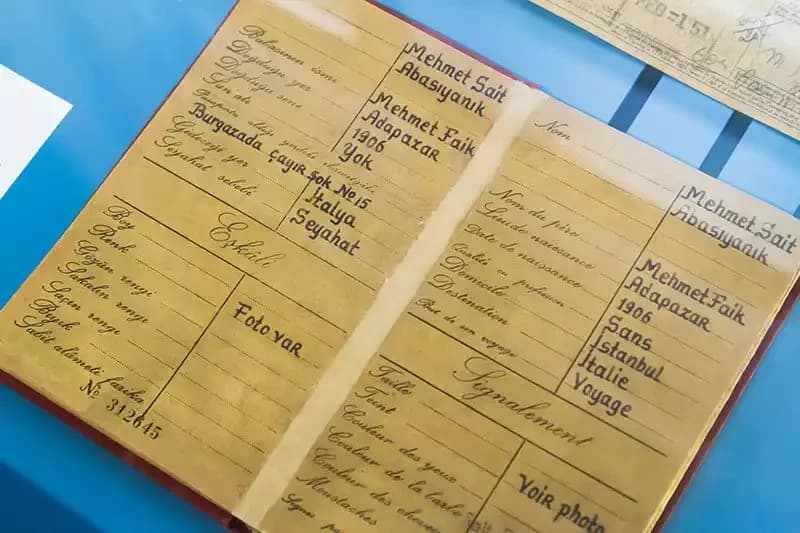 Mehmet Sait
Abasıyanık
Babasının ismi Mehmet Faik
Doğduğu yer Adapazar
Doğduğu sene 1906
San'atı Yok
Burgazada çayır sok No 15
Gideceği yer İtalya
Seyahat sebebi Seyahat
Eşkâli
Boy
Renk
Gözün rengi
Sakalın rengi
Saçın rengi
Bıyık
Sabit alâmeti farika
Foto var
No 312645
Nom Mehmet Sait
Abasıyanık
Nom du père Mehmet Faik
Lieu de naissance Adapazar
Date de naissance 1906
Qualité ou profession Sans
Domicile İstanbul
Destination İtalie
But de son voyage Voyage
Signalement
Taille
Teint
Couleur des yeux
Couleur de la barbe
Couleur des cheveux
Moustaches
Voir photo